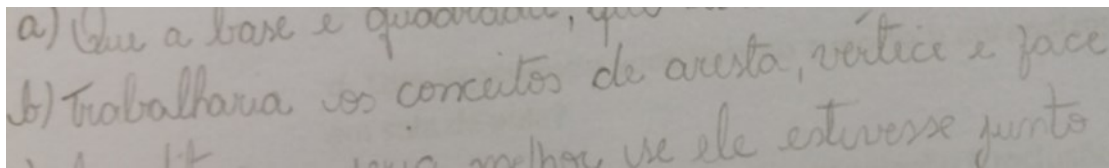 a) Que a base e quadrada, que
b) Trabalharia os conceitos de aresta, vértice e face
melhor se ele estivesse junto